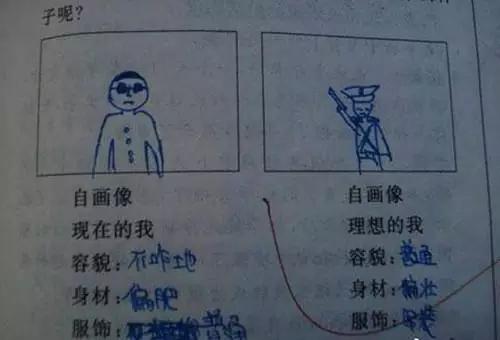 子呢？
自画像 自画像
现在的我 理想的我
容貌：不咋地 容貌：普通
身材：偏肥 身材：偏壮
服饰：普通 服饰：军装